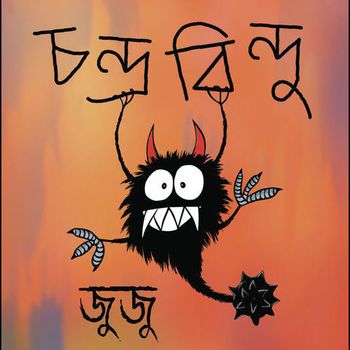 চন্দ্রবিন্দু
জুজু